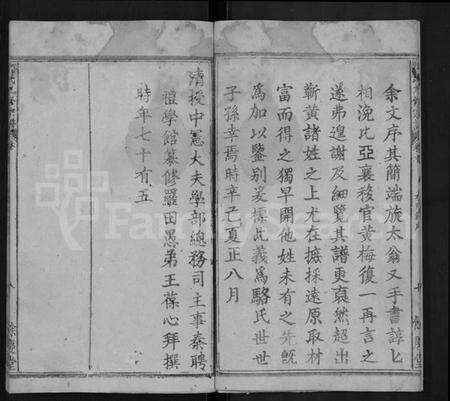 余文序其簡端旋太翁又手書諄匕
相浼比亞襄移官黃梅復一再言之
遂弗遑謝及細覽其譜更裒然超出
蘄黃諸姓之上尤在摭採遠原取材
富而得之獨早開他姓未有之先旣
為加以鑒別爰據此義為駱氏世世
子孫幸焉時辛己夏正八月
清授中憲大夫學部總務司主事奏聘
禮學館纂修羅田愚弟王葆心拜撰
時年七十有五
FamilySearch